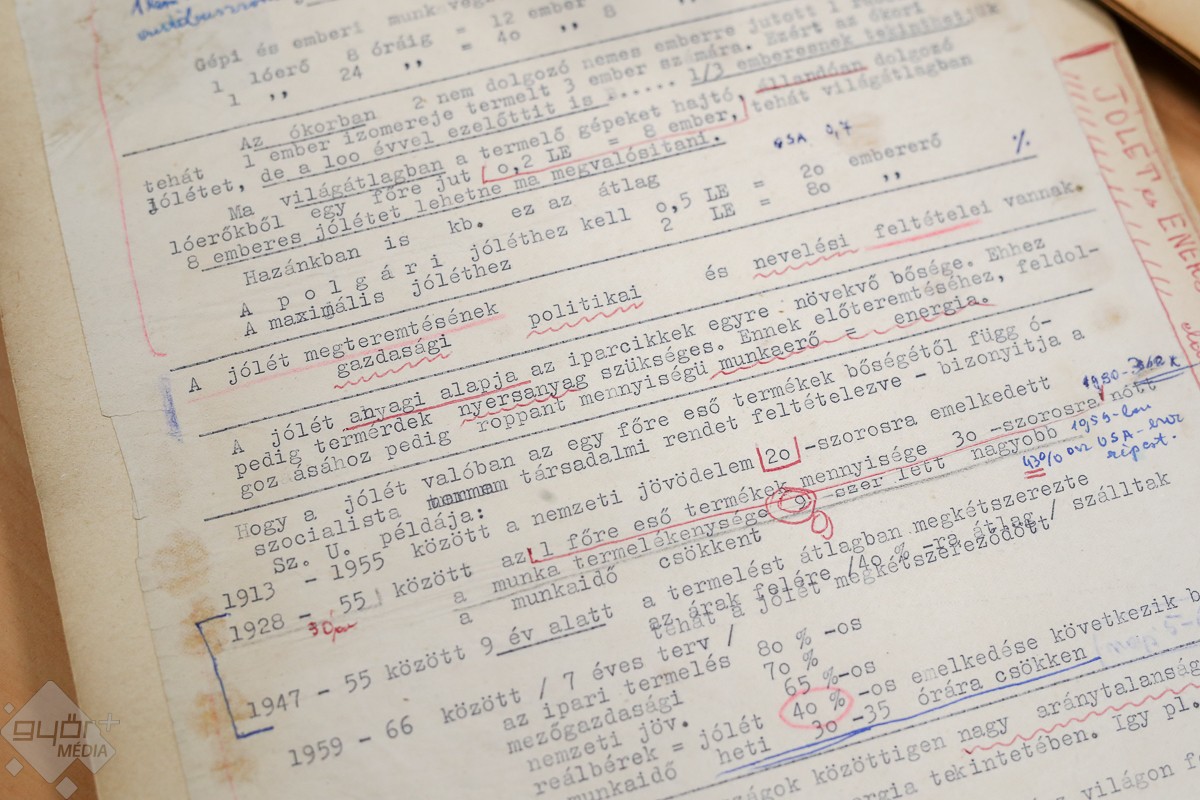 autóbuszon
Gépi és emberi munkavég
1 lóerő 8 óráig = 12 ember
1 ,, 24 ,, = 40 ,, 8
Az ókorban 2 nem dolgozó nemes emberre jutott 1
tehát 1 ember izomereje termelt 3 ember számára. Ezért az ókori
jólétet, de a 100 évvel ezelőttit is ...... 1/3 emberesnek tekinthetjük
Ma világátlagban a termelő gépeket hajtó, állandóan dolgozó
lóerőkből egy főre jut 0,2 LE = 8 ember, tehát világátlagban
8 emberes jólétet lehetne ma megvalósitani.
USA 0,7
Hazánkban is kb. ez az átlag
A polgári jóléthez kell 0,5 LE = 20 embererő %
A maximális jóléthez 2 LE = 80 ,,
A jólét megteremtésének gazdasági politikai és nevelési feltételei vannak.
A jólét anyagi alapja az iparcikkek egyre növekvő bősége. Ehhez
pedig termérdek nyersanyag szükséges. Ennek előteremtéséhez, feldol-
goz ásához pedig roppant mennyiségü munkaerő = energia.
Hogy a jólét valóban az egy főre eső termékek bőségétől függ ó-
szocialista társadalmi rendet feltételezve - bizonyitja a
Sz. U. példája:
1913 - 1955 között a nemzeti jövödelem 20 -szorosra emelkedett
1928 - 55 között az 1 főre eső termékek mennyisége 30 -szorosra nőtt
a munka termelékenysége 9 -szer lett nagyobb
a munkaidő csökkent
1955-ben
43% az USA-énak
1947 - 55 között 9 év alatt a termelést átlagban megkétszerezte
az árak felére /40 % -ra átlag / szálltak
tehát a jólét megkétszereződött
1959 - 66 között / 7 éves terv /
az ipari termelés 80 % -os
mezőgazdasági 70 %
nemzeti jöv. 65 %-os
reálbérek = jólét 40 % -os emelkedése következik b
munkaidő heti 30 -35 órára csökken
szágok közöttigen nagy aránytalanság
rgia tekintetében. Igy pl.
világon f
JÓLÉT és ENER
győr+
MÉDIA